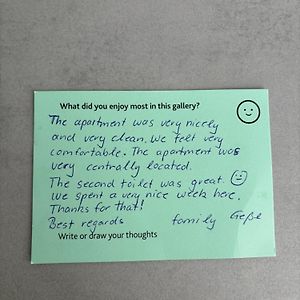 What did you enjoy most in this gallery?
The apartment was very nicely
and very clean. We felt very
comfortable. The apartment was
very centrally located.
The second toilet was great
We spent a very nice week here.
Thanks for that!
Best regards family Geße
Write or draw your thoughts